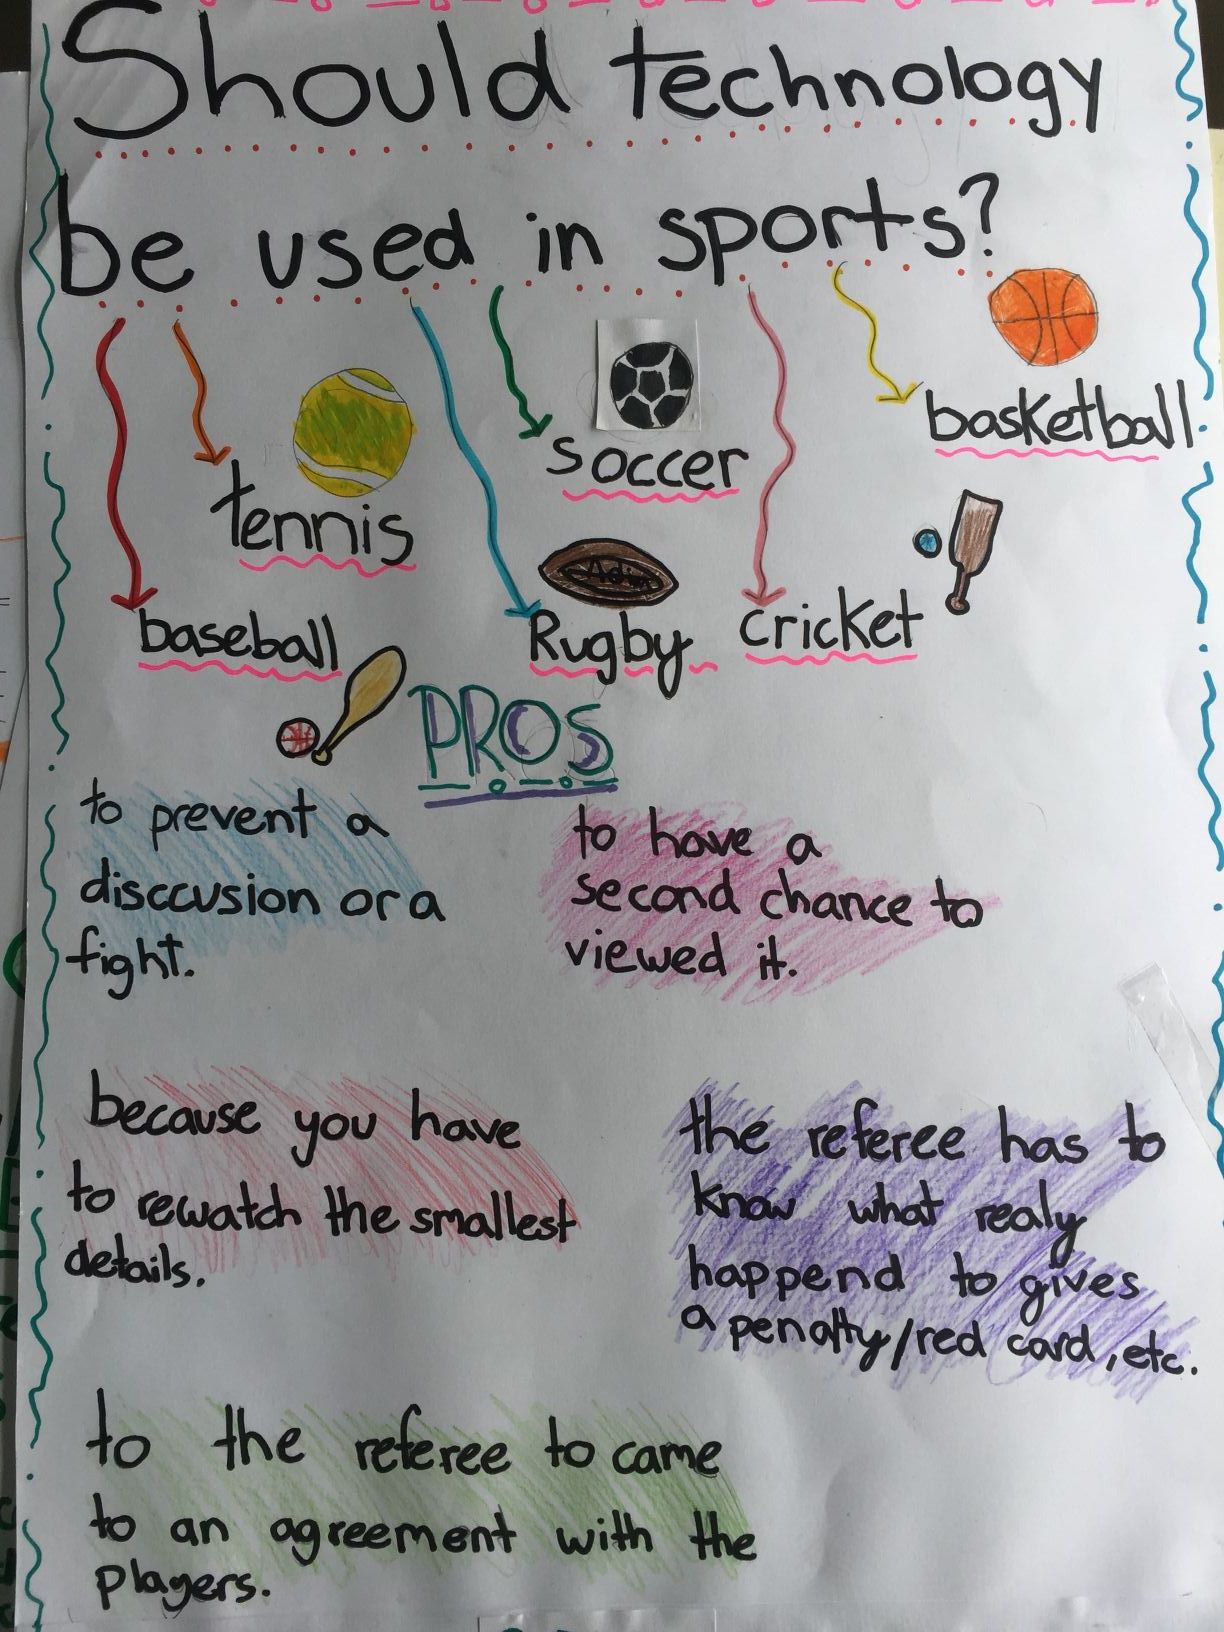 Should technology
be used in sports?
basketball
soccer
tennis
baseball
Rugby
cricket
PROS
to prevent a
disccusion or a
fight.
to have a
second chance to
viewed it.
because you have
to rewatch the smallest
details.
the referee has to
know what realy
happend to gives
a penalty/red card, etc.
to the referee to came
to an agreement with the
players.